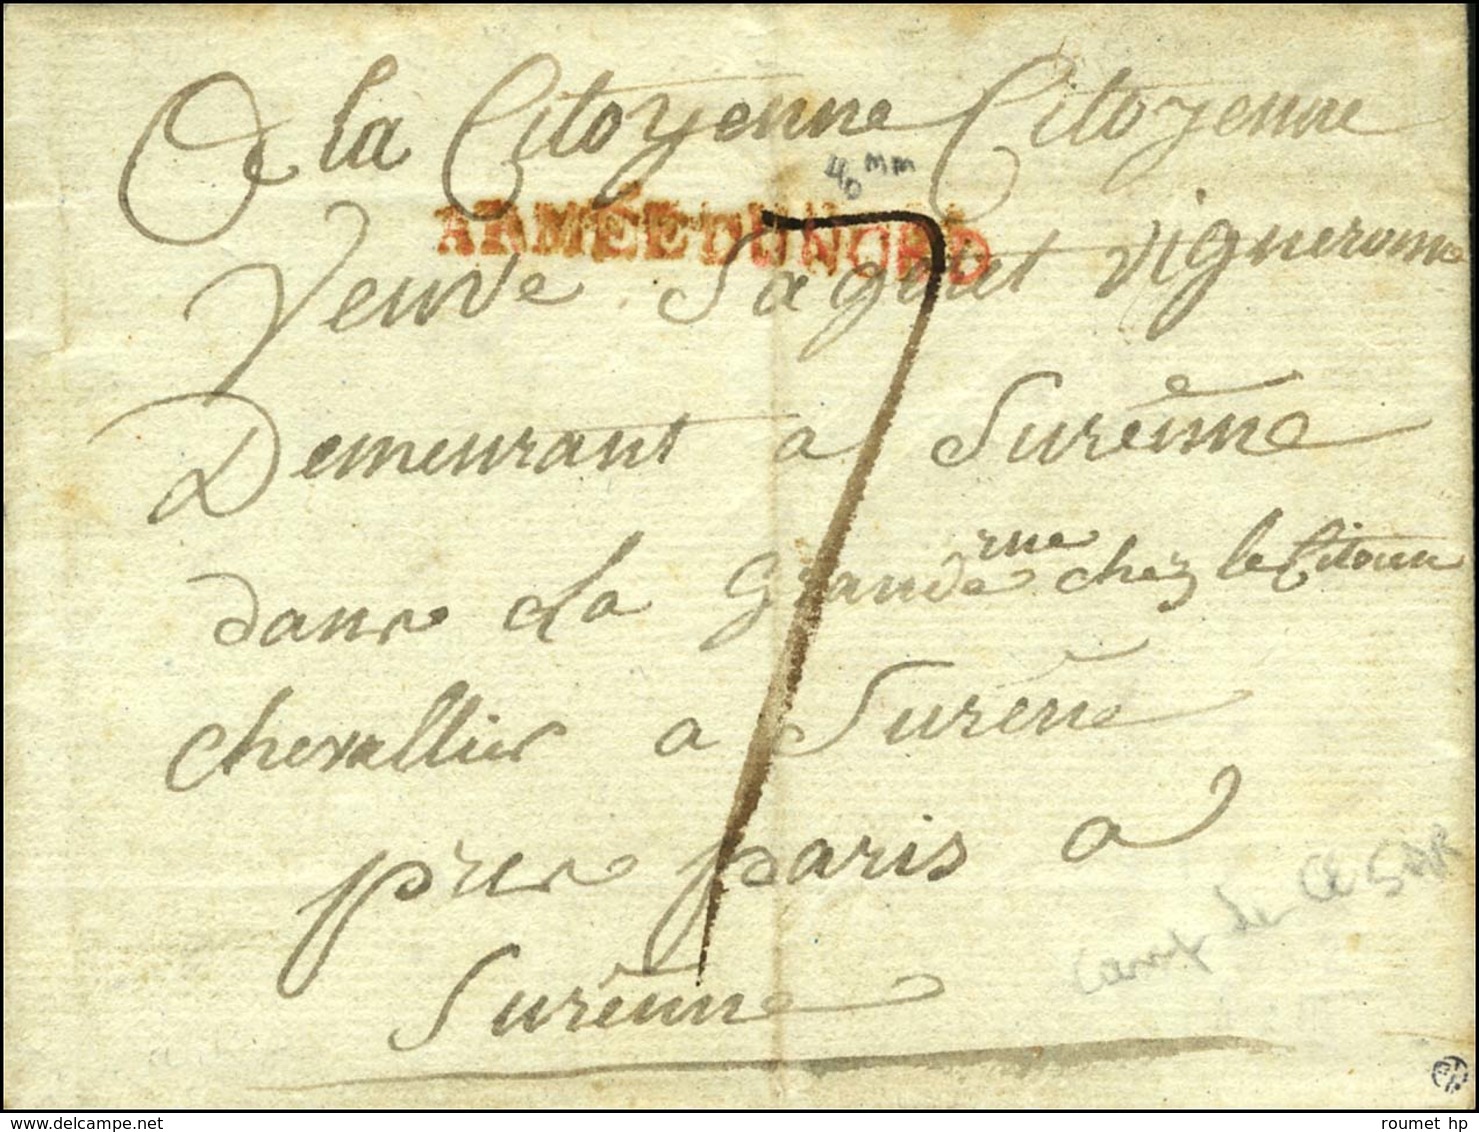 A la Citoyenne Citoyenne
40 mm
ARMÉE DU NORD
Veuve Sagout vigneronne
Demeurant a Surênne
dans la Grande rue chez le Citoien
chevallier a Surêne
pres paris a
Surênne
Camp de CESAR
7
delcampe.net
roumet hp